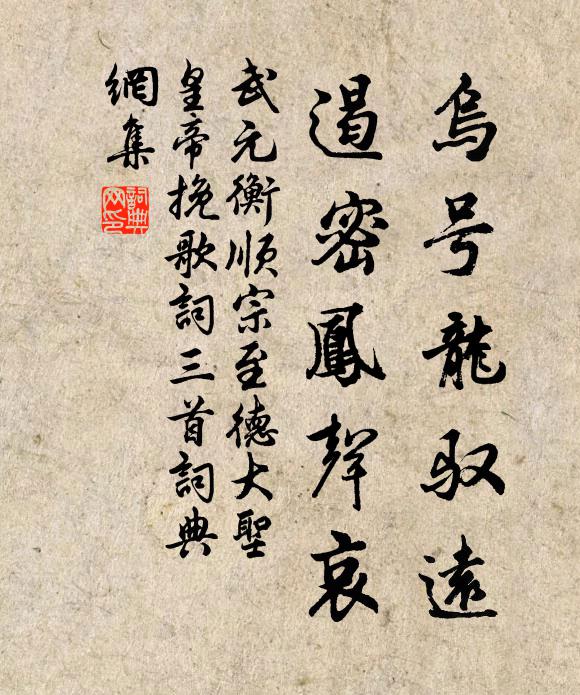 烏号龍馭遠
遏密鳳聲哀
武元衡順宗至德大聖
皇帝挽歌詞三首詞典
網集
詞典網印